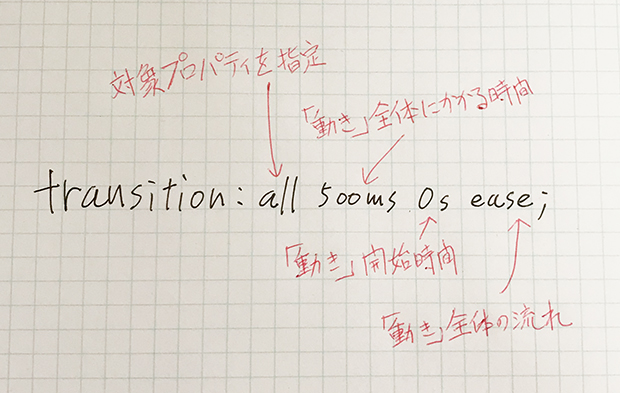 対象プロパティを指定
「動き」全体にかかる時間
transition: all 500ms 0s ease;
「動き」開始時間
「動き」全体の流れ